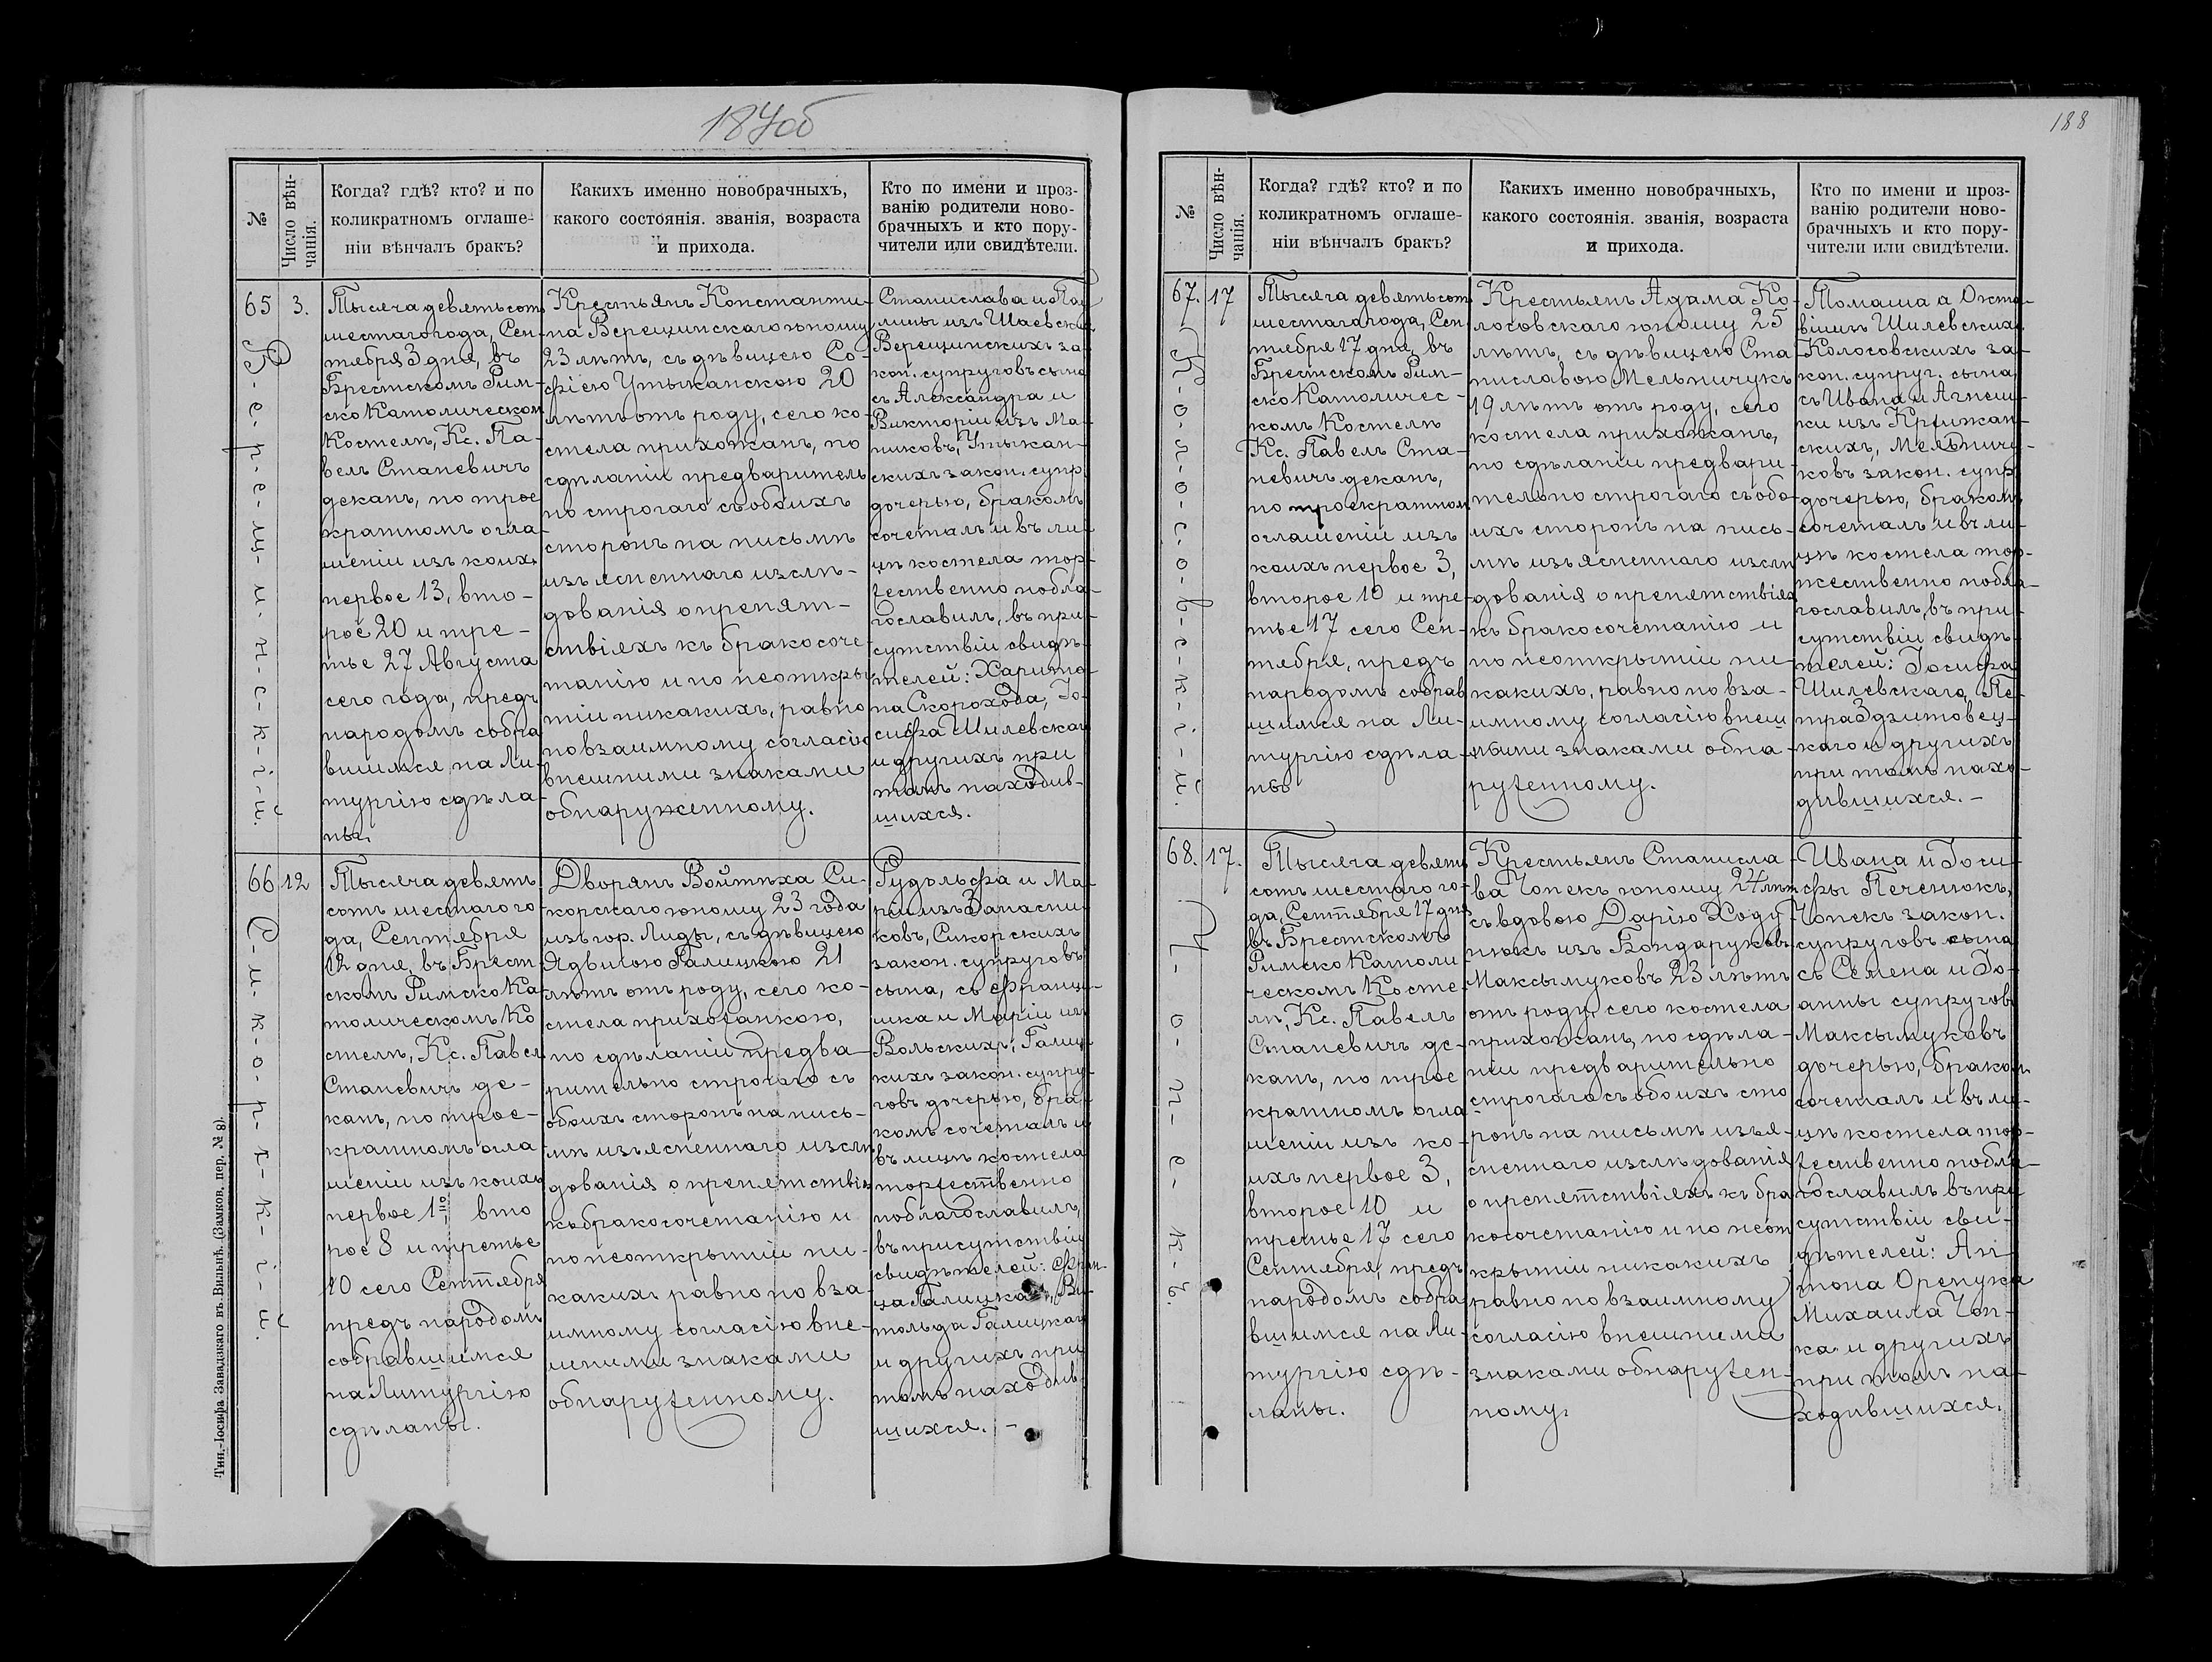 187об
188
№
Число вѣн-
чанія.
Когда? гдѣ? кто? и по
коликратномъ оглаше-
ніи вѣнчалъ бракъ?
Какихъ именно новобрачныхъ,
какого состоянія. званія, возраста
и прихода.
Кто по имени и проз-
ванію родители ново-
брачныхъ и кто пору-
чители или свидѣтели.
65
3.
В-е-р-е-щ-и-н-с-к-і-й.
Тысяча девятьсот
шестаго года, Сен-
тября 3 дня, въ
Брестскомъ Рим-
ско Католическом
Костелѣ, Кс. Па-
велъ Станевичъ
деканъ, по трое
кратномъ огла-
шеніи изъ коихъ
первое 13, вто-
рое 20 и тре-
тье 27 Августа
сего года, предъ
народомъ собра
вшимся на Ли-
тургію сдѣла
ны.
Крестьянъ Константи-
на Верещинскаго юношу
23 лѣтъ, съ дѣвицею Со-
фіею Утыканскою 20
лѣтъ отъ роду, сего ко-
стела прихожанъ, по
сдѣланіи предваритель
но строгаго съ обоихъ
сторонъ на письмѣ
изъясненнаго изслѣ-
дованія о препят-
ствіяхъ къ бракосоче-
танію и по неоткры
тіи никакихъ, равно
по взаимному согласію
внешними знаками
обнаруженному.
Станислава и Па
лины изъ Шаевских
Верещинскихъ за-
кон. супруговъ сына
съ Александра и
Викторіи изъ Ма-
никовъ, Утыкан-
скихъ закон. супр.
дочерью, бракомъ
сочеталъ и въ ли-
цѣ костела тор-
жественно побла-
гославилъ, въ при-
сутствіи свидѣ-
телей: Харито-
на Скорохода, Іо-
сифа Шилевскаго
и другихъ при
томъ находив-
шихся.
66
12
С-и-к-о-р-с-к-і-й.
Тысяча девять
сотъ шестаго го
да, Сентября
12 дня, въ Брест-
скомъ Римско Ка-
толическомъ Ко
стелѣ, Кс. Павел
Станевичъ де-
канъ, по трое-
кратномъ огла
шеніи изъ коихъ
первое 1ᵒᵉ, вто
рое 8 и третье
10 сего Сентября
предъ народомъ
собравшимся
на Литургію
сдѣланы.
Дворянъ Войтѣха Си-
корскаго юношу 23 года
изъ гор. Лиды, съ дѣвицею
Ядвигою Галицкою 21
лѣтъ отъ роду, сего ко-
стела прихожанкою,
по сдѣланіи предва-
рительно строгаго съ
обоихъ сторонъ на пись-
мѣ изъясненнаго изслѣ
дованія о препятствіях
къ бракосочетанію и
по неоткрытіи ни-
какихъ равно по вза-
имному согласію вне-
шними знаками
обнаруженному.
Рудольфа и Ма-
ріи изъ Запасни-
ковъ, Сикорскихъ
закон. супруговъ
сына, съ Франц-
ишка и Маріи из
Вольскихъ, Галиц-
кихъ закон. супру-
говъ дочерью, бра-
комъ сочеталъ и
въ лицѣ костела
торжественно
поблагославилъ,
въ присутствіи
свидѣтелей: Фран-
ца Галицкаго, Ви-
тольда Галицкаго
и другихъ при
томъ находив-
шихся. -
Тип. Іосифа Завадзкаго въ Вильнѣ. (Замков. пер. № 8).
№
Число вѣн-
чанія.
Когда? гдѣ? кто? и по
коликратномъ оглаше-
ніи вѣнчалъ бракъ?
Какихъ именно новобрачныхъ,
какого состоянія. званія, возраста
и прихода.
Кто по имени и проз-
ванію родители ново-
брачныхъ и кто пору-
чители или свидѣтели.
67.
17
К-о-л-о-с-о-в-с-к-і-й.
Тысяча девятьсот
шестаго года, Сен
тября 17 дня, въ
Брестскомъ Рим-
ско Католичес-
комъ Костелѣ
Кс. Павелъ Ста-
невичъ деканъ,
по троекратном
оглашеніи изъ
коихъ первое 3,
второе 10 и тре-
тье 17 сего Сен-
тября, предъ
народомъ собрав
шимся на Ли-
тургію сдѣла-
ны
Крестьянъ Адама Ко-
лосовскаго юношу 25
лѣтъ, съ дѣвицею Ста
ниславою Мельничукъ
19 лѣтъ отъ роду, сего
костела прихожанъ,
по сдѣланіи предвари-
тельно строгаго съ обо-
ихъ сторонъ на пись-
мѣ изъясненнаго изслѣ
дованія о препятствіях
къ бракосочетанію и
по неоткрытіи ни-
какихъ, равно по вза-
имному согласію внеш
ными знаками обна-
руженному.
Томаша а Окта-
віи изъ Шилевских
Колосовскихъ за-
кон. супруг. сына
съ Ивана и Агнеш-
ки изъ Крыжан-
скихъ, Мельничу-
ковъ закон. супр
дочерью, бракомъ
сочеталъ и въ ли-
цѣ костела тор-
жественно побла-
гославилъ, въ при-
сутствіи свидѣ-
телей: Іосифа
Шилевскаго, Пе-
тра Здзитовец-
каго и другихъ
при томъ нахо-
дившихся. -
68.
17.
Ч-о-п-е-к-ъ.
Тысяча девять
сотъ шестаго го-
да, Сентября 17 дня
въ Брестскомъ
Римско Католи
ческомъ Косте-
лѣ, Кс. Павелъ
Станевичъ де-
канъ, по трое
кратномъ огла
шеніи изъ ко-
ихъ первое 3,
второе 10 и
третье 17 сего
Сентября, предъ
народомъ собра
вшимся на Ли-
тургію сдѣ-
ланы.
Крестьянъ Станисла-
ва Чопекъ юношу 24 лѣт
съ вдовою Дарію Ходу-
нюкъ изъ Бондаруковъ
Максымуковъ 23 лѣтъ
отъ роду, сего костела
прихожанъ, по сдѣла-
ніи предварительно
строгаго съ обоихъ сто
ронъ на письмѣ изъя-
сненнаго изслѣдованія
о препятствіяхъ къ бра
косочетанію и по неот
крытіи никакихъ
равно по взаимному
согласію внешними
знаками обнаружен-
ному.
Ивана и Іоси-
фы Печенюкъ,
Чопекъ закон.
супруговъ сына
съ Семена и Іо-
анны супругов
Максымуковъ
дочерью, бракомъ
сочеталъ и въ ли-
цѣ костела тор-
жественно побла-
гославилъ въ при
сутствіи сви-
дѣтелей: Ан-
тона Орепука
Михаила Чоп-
ка и другихъ
при томъ на-
ходившихся.